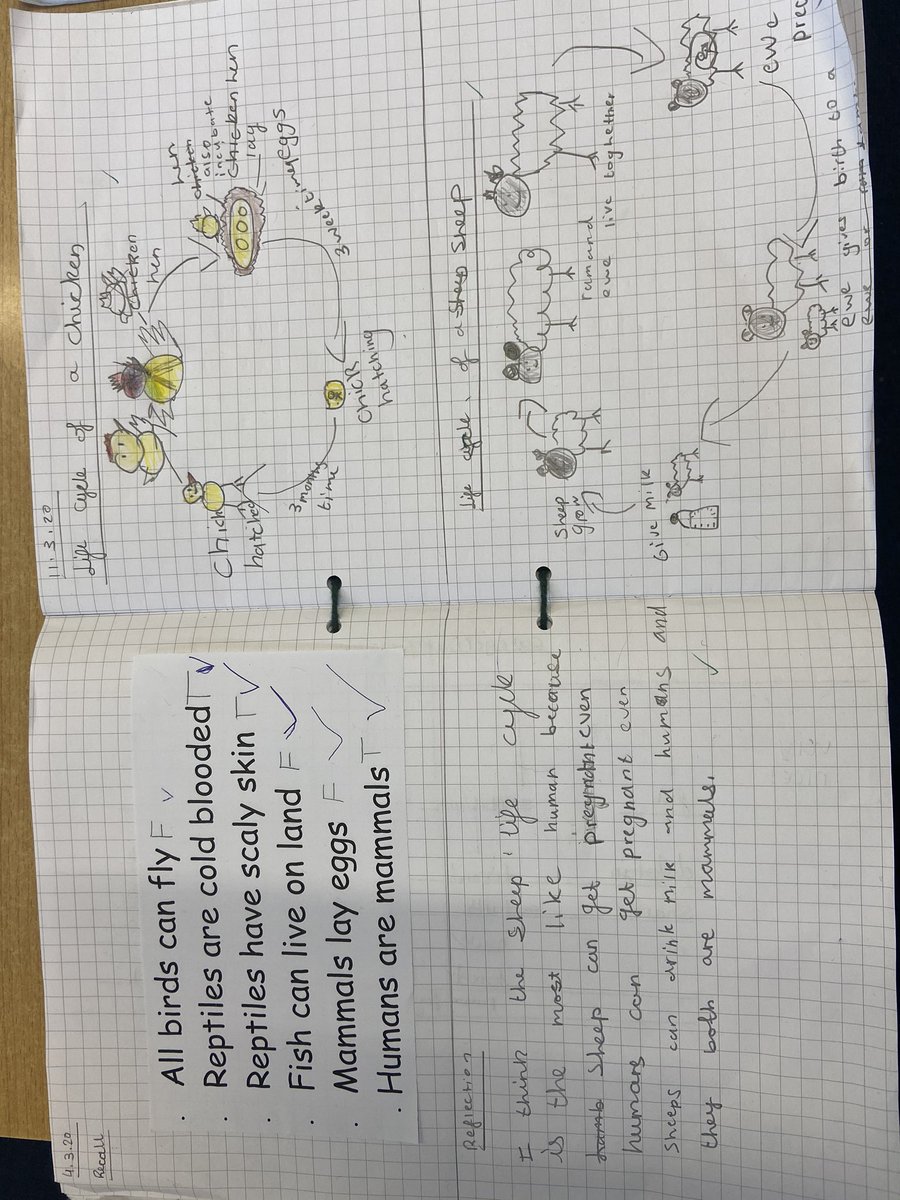 4.3.20
Recall
· All birds can fly F ✓
· Reptiles are cold blooded T ✓
· Reptiles have scaly skin T ✓
· Fish can live on land F ✓
· Mammals lay eggs F ✓
· Humans are mammals T ✓
Reflection
I think the sheep life cycle
is the most like human because
sheep can get even
humans can get pregnant even
sheeps can drink milk and humans and
they both are mammals. ✓
11.3.20
Life cycle of a chicken
chicken
hen
hen
chicken
also
incubate
chicken hen
lay
eggs
3 week time
chick
hatching
3 months
time
Chick
hatched
Life cycle of a sheep sheep
Sheep
grow
ram and
ewe live toghether
ewe
ewe gives birth to a
ewe or
Give milk